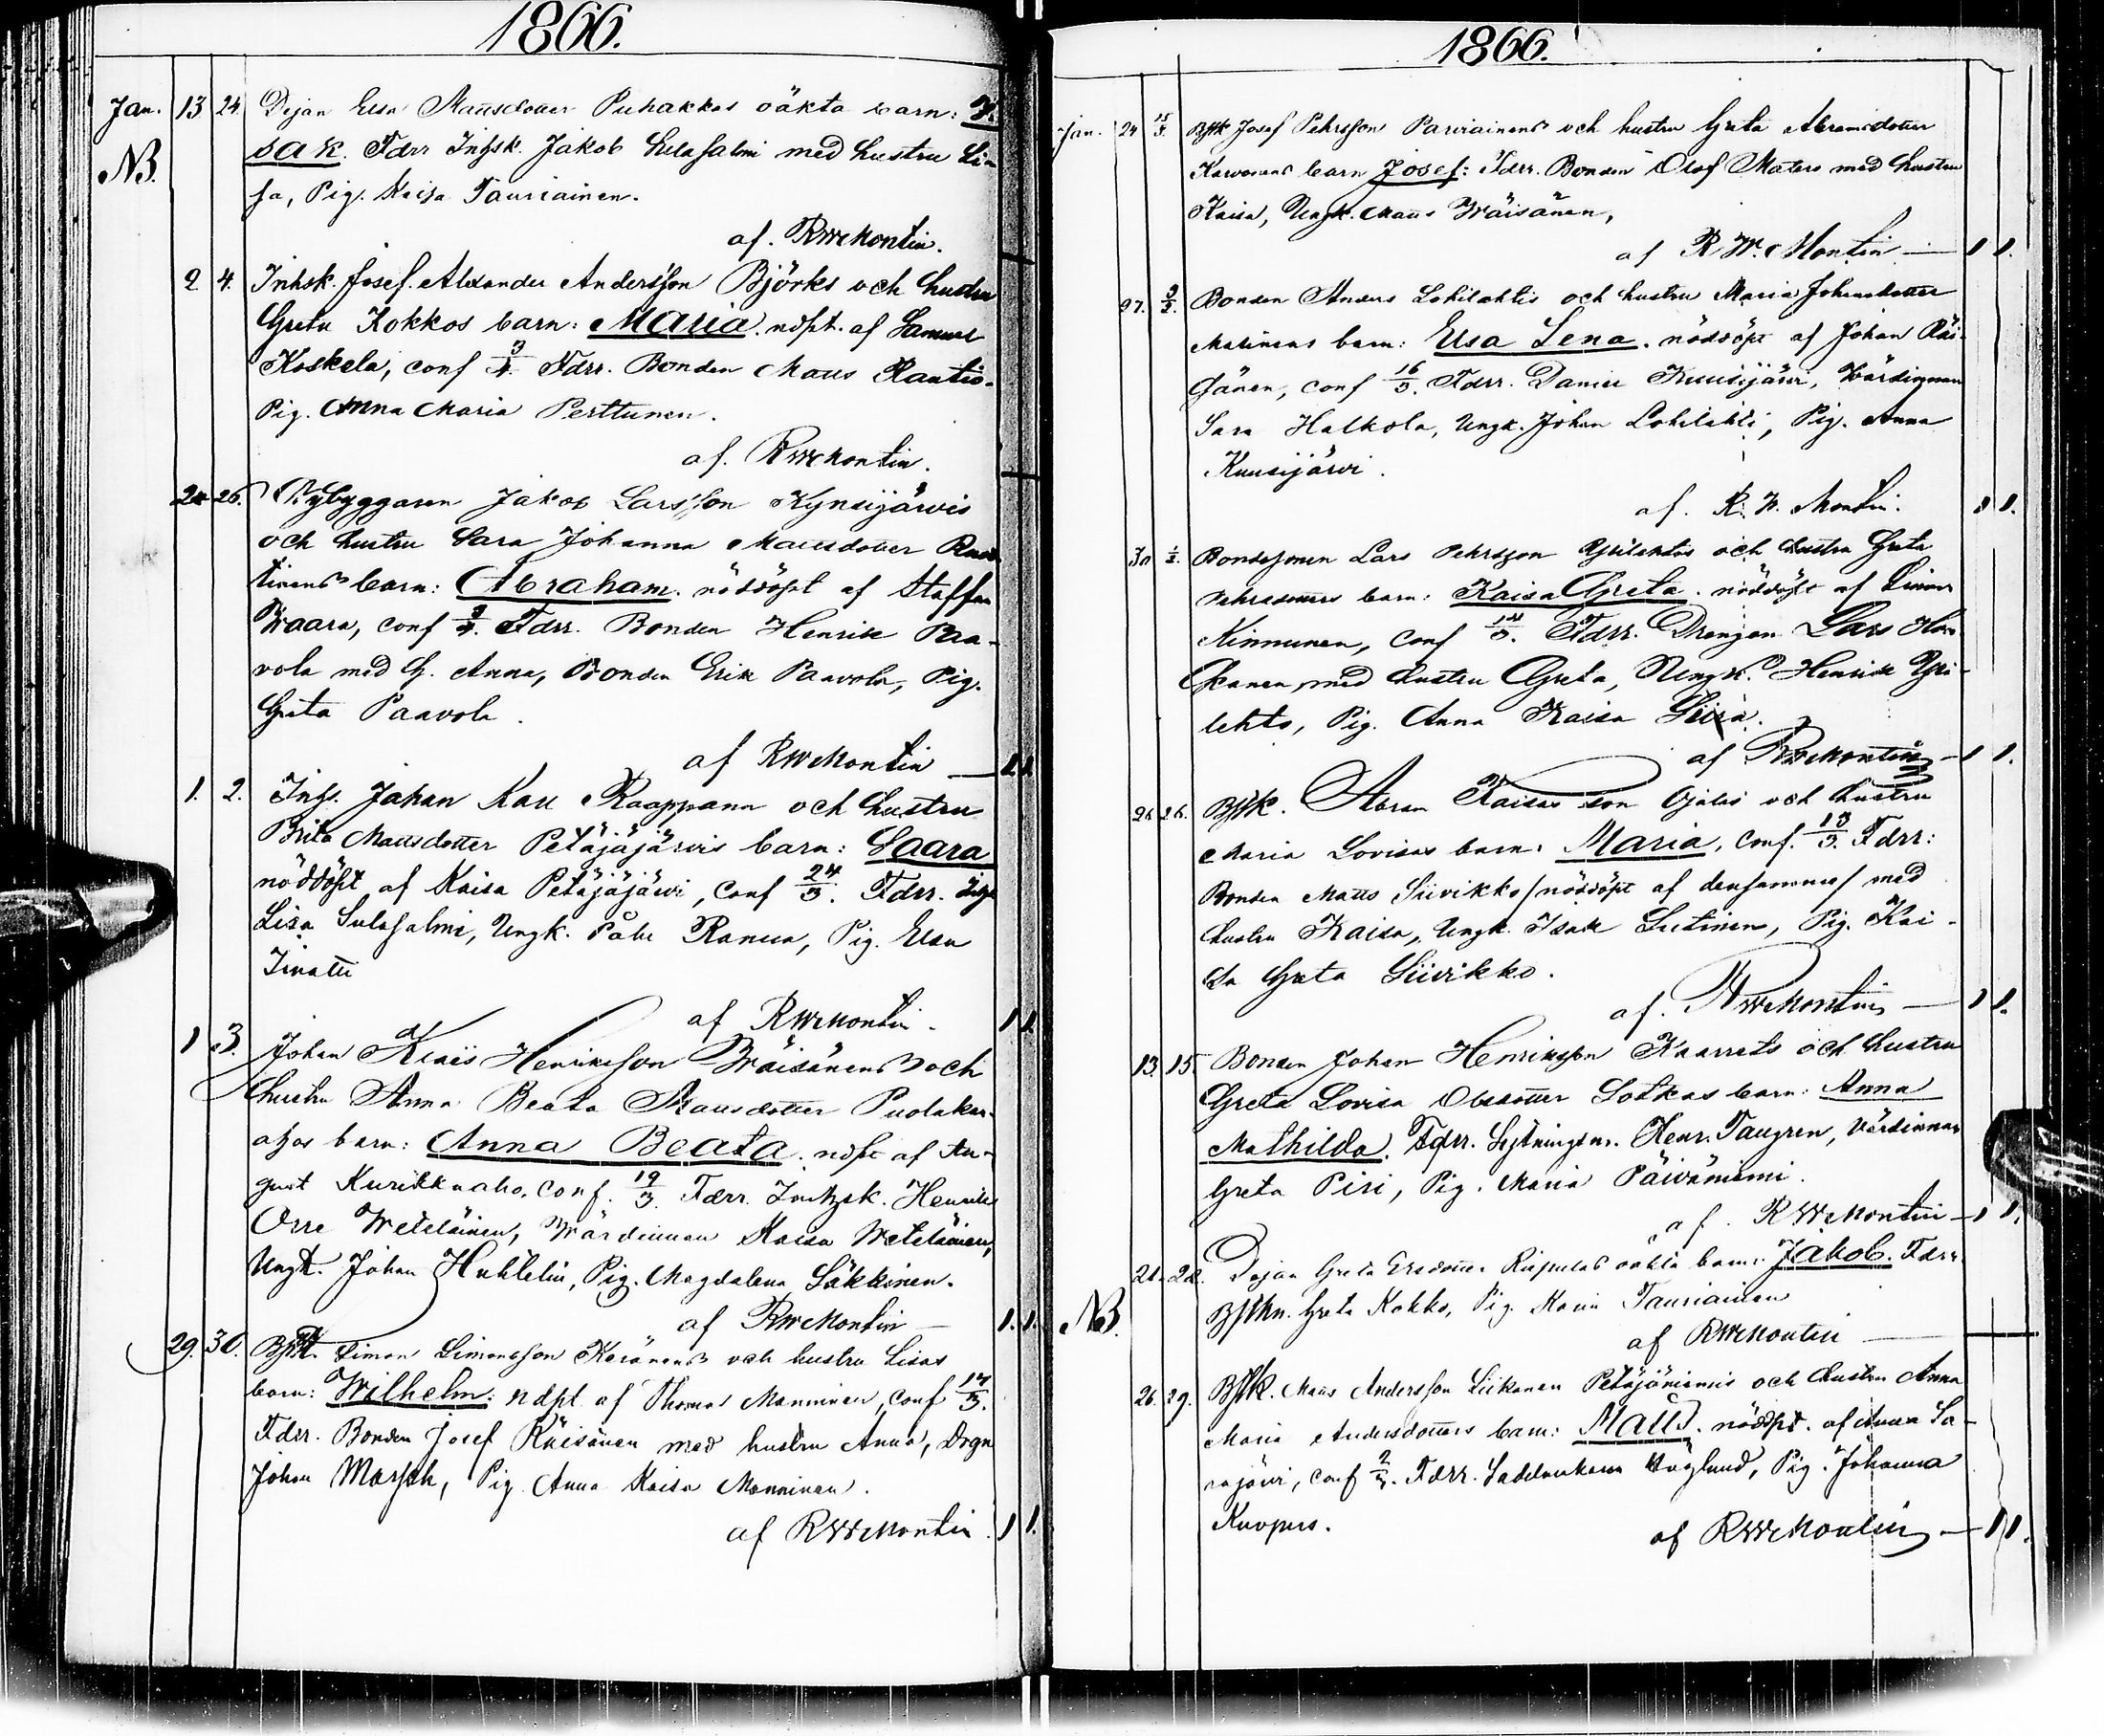 1866.
Jan. 13 24. Dejan Elsa Mattsdotter Puhakkas oäkta barn: I-
NB. sak. Fdrr Inhsk. Jakob Sulasalmi med hustru Li-
sa, Pig. Kaisa Tauriainen.
af. RWMontin.
2 4. Inhsk. Josef Alexander Andersson Björks och hustru
Greta Kokkos barn: Maria. ndpt. af Samuel
Koskela, conf 3/4. Fdrr. Bonden Matts Rautio.
Pig. Anna Maria Perttunen.
af. RWMontin.
24 26. Nybyggaren Jakob Larsson Kynsijärvis
och hustru Sara Johanna Mattsdotter
tinens barn: Abraham. nöddöpt af Staffan
Waara, conf Fdrr. Bonden Henrik Paa-
vola med h. Anna, Bonden Erik Paavola, Pig.
Greta Paavola.
af RWMontin — 1 1.
1. 2. Inhs. Johan Karl Raappana och hustru
Brita Mattsdotter Petäjäjärvis barn: Saara
nöddöpt af Kaisa Petäjäjärvi, conf 24/3. Fdrr.
Lisa Sulasalmi, Ungk. Påhl Ranua, Pig. Elsa
af RWMontin. 1 1.
1 3. Johan Henriksson Wäisänens och
hustru Anna Beata Mattsdotter Puolakan-
ahos barn: Anna Beata. ndpt af Au-
gust Kurikkaaho. conf. 19/3 Fdrr. Inhysk. Henrik
Orre Weteläinen, Wärdinnan Kaisa Weteläinen,
Ungk. Johan Huhtelin, Pig. Magdalena Säkkinen.
af RWMontin — 1. 1.
29. 30. Bstk. Simon Simonsson Keränens och hustru Lisas
barn: Wilhelm. ndpt af Thomas Manninen, conf 17/3.
Fdrr. Bonden Josef Räisänen med hustru Anna, Drgn
Johan Marsch, Pig. Anna Kaisa Manninen.
af RWMontin. 1 1.
1866.
Jan. 24 15/3. Bstk Josef Pehrsson Parviainens och hustru Greta Abramsdotter
Karvonens barn Josef: Fdrr. Bonden Olof Matero med hustru
Kaisa, Ungk. Matts Wäisänen,
af R. W. Montin — 1 1.
27. 2/2. Bonden Anders Lohilahtis och hustru Maria Johansdotter
Malinens barn: Elsa Lena. nöddöpt af Johan Räi-
sänen, conf 16/3. Fdrr. Daniel Kuusijärvi, Wärdinnan
Sara Halkola, Ungk. Johan Lohilahti, Pig. Anna
Kuusijärvi.
af. R. W. Montin. 1 1.
30 1/2. Bondesonen Lars Pehrsson Yrilehtos och hustru Greta
Pehrsdotters barn: Kaisa Greta. nöddöpt af Simon
Kinnunen, conf 14/3. Fdrr. Drengen Lars
kanen med hustru Greta, Ungk. Henrik Yri-
lehto, Pig. Anna Kaisa Siira.
af RWMontin — 1 1.
26 26. Bstk. Abram Kaisas son Ojalas och hustru
Maria Lovisas barn: Maria, conf. 13/3. Fdrr:
Bonden Matts Siivikko /nöddöpt af densamme/ med
hustru Kaisa, Ungk. Isak Lutinen, Pig. Kai-
sa Greta Siivikko.
af. RWMontin — 1 1.
13. 15. Bonden Johan Henriksson Kaarrets och hustru
Greta Lovisa Olsdotter Sotkas barn: Anna
Mathilda. Fdrr. Henr. Taugren, Värdinnan
Greta Piri, Pig. Maria Päiväniemi.
af. RWMontin — 1 1.
21. 22. Dejan Greta Ersdotter oäkta barn: Jakob. Fdrr
NB. Bstkn. Greta Kokko, Pig. Kaisa Tauriainen
af RWMontin
26. 29. Bstk. Matts Andersson Liikanen Petäjäniemis och hustru Anna
Maria Andersdotters barn: Matts. nöddpt. af Anna Sa-
rajärvi, conf Fdrr. Sadelmakaren Höglund, Pig. Johanna
Kuopus.
af RWMontin — 1 1.